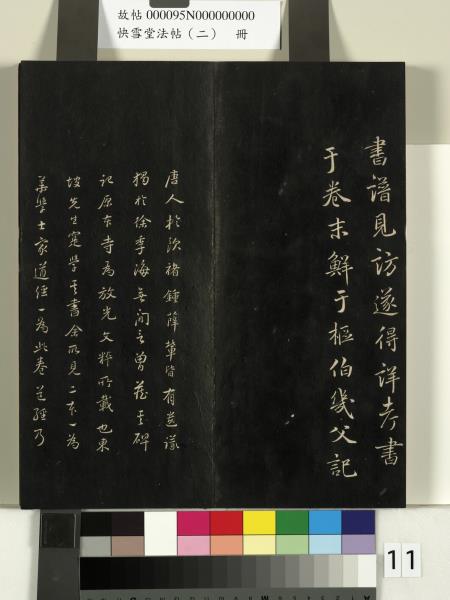 故帖 000095N000000000
快雪堂法帖（二） 冊
書譜見訪遂得詳考書
于卷末鮮于樞伯幾父記
唐人於歐褚鍾薛輩皆有造議
獨於徐季海無間言曾荗其碑
記原本寺為放光文粹所載也東
坡先生寔學其書余所見二本一為
萊學士家道經一為此卷道經乃
11